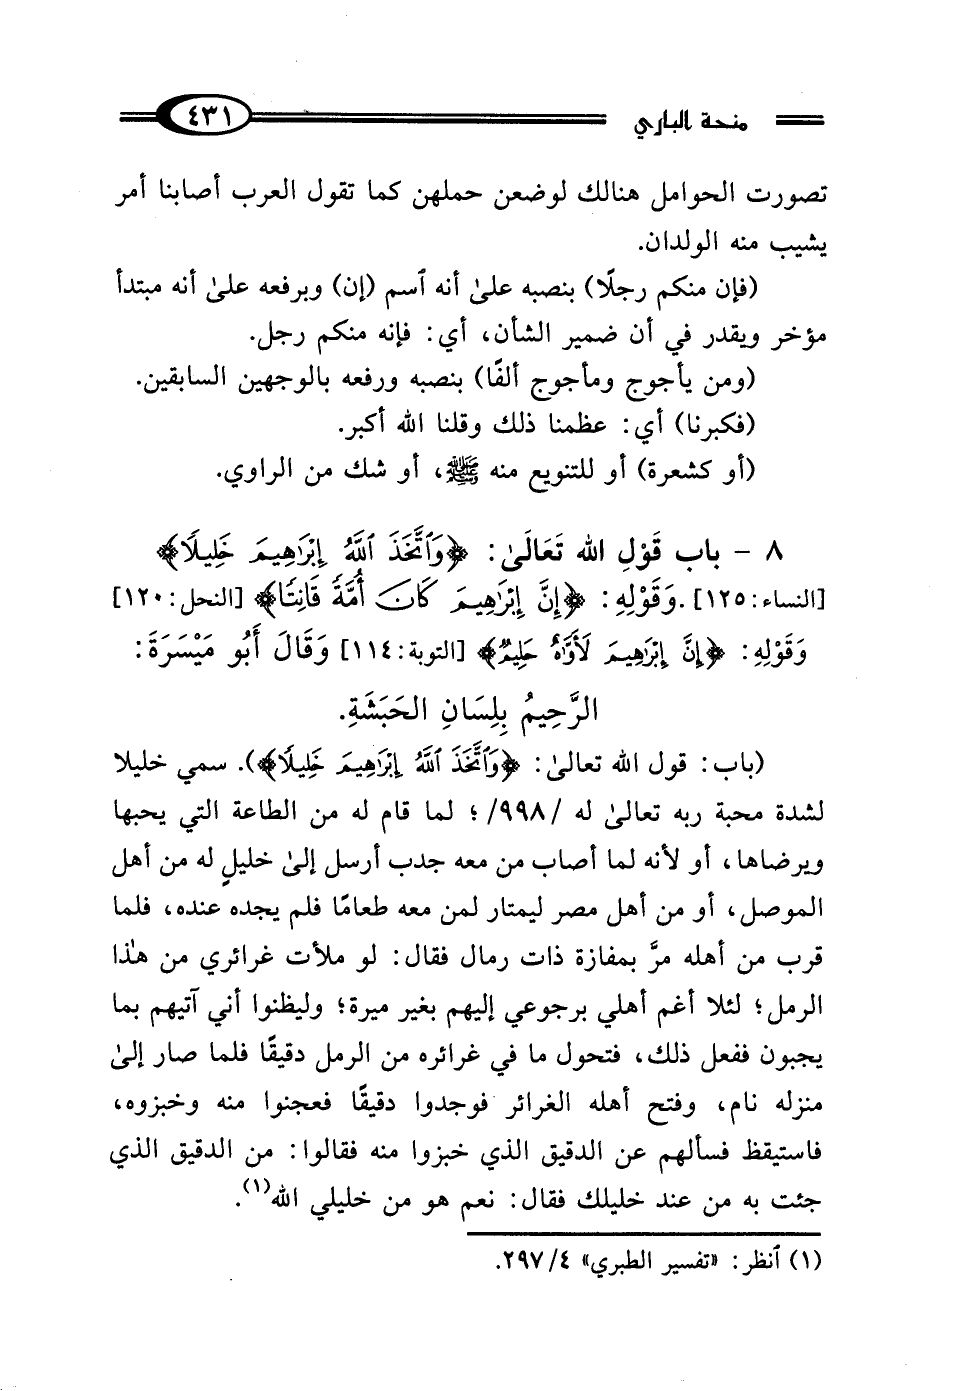 منحة الباري ٤٣١
تصورت الحوامل هنالك لوضعن حملهن كما تقول العرب أصابنا أمر
يشيب منه الولدان.
(فإن منكم رجلًا) بنصبه علىٰ أنه ٱسم (إن) وبرفعه علىٰ أنه مبتدأ
مؤخر ويقدر في أن ضمير الشأن، أي: فإنه منكم رجل.
(ومن يأجوج ومأجوج ألفًا) بنصبه ورفعه بالوجهين السابقين.
(فكبرنا) أي: عظمنا ذلك وقلنا الله أكبر.
(أو كشعرة) أو للتنويع منه ﷺ، أو شك من الراوي.
٨ - باب قَوْلِ الله تَعَالَىٰ: ﴿وَٱتَّخَذَ ٱللَّهُ إِبْرَٰهِيمَ خَلِيلًا﴾
[النساء: ١٢٥]. وَقَوْلِهِ: ﴿إِنَّ إِبْرَٰهِيمَ كَانَ أُمَّةً قَانِتًا﴾ [النحل: ١٢٠]
وَقَوْلِهِ: ﴿إِنَّ إِبْرَٰهِيمَ لَأَوَّٰهٌ حَلِيمٌ﴾ [التوبة: ١١٤] وَقَالَ أَبُو مَيْسَرَةَ:
الرَّحِيمُ بِلِسَانِ الحَبَشَةِ.
(باب: قول الله تعالىٰ: ﴿وَٱتَّخَذَ ٱللَّهُ إِبْرَٰهِيمَ خَلِيلًا﴾). سمي خليلا
لشدة محبة ربه تعالىٰ له /٩٩٨/؛ لما قام له من الطاعة التي يحبها
ويرضاها، أو لأنه لما أصاب من معه جدب أرسل إلىٰ خليلٍ له من أهل
الموصل، أو من أهل مصر ليمتار لمن معه طعامًا فلم يجده عنده، فلما
قرب من أهله مرَّ بمفازة ذات رمال فقال: لو ملأت غرائري من هٰذا
الرمل؛ لئلا أغم أهلي برجوعي إليهم بغير ميرة؛ وليظنوا أني آتيهم بما
يجبون ففعل ذلك، فتحول ما في غرائره من الرمل دقيقًا فلما صار إلىٰ
منزله نام، وفتح أهله الغرائر فوجدوا دقيقًا فعجنوا منه وخبزوه،
فاستيقظ فسألهم عن الدقيق الذي خبزوا منه فقالوا: من الدقيق الذي
جئت به من عند خليلك فقال: نعم هو من خليلي الله(١).
(١) ٱنظر: «تفسير الطبري» ٢٩٧/٤.